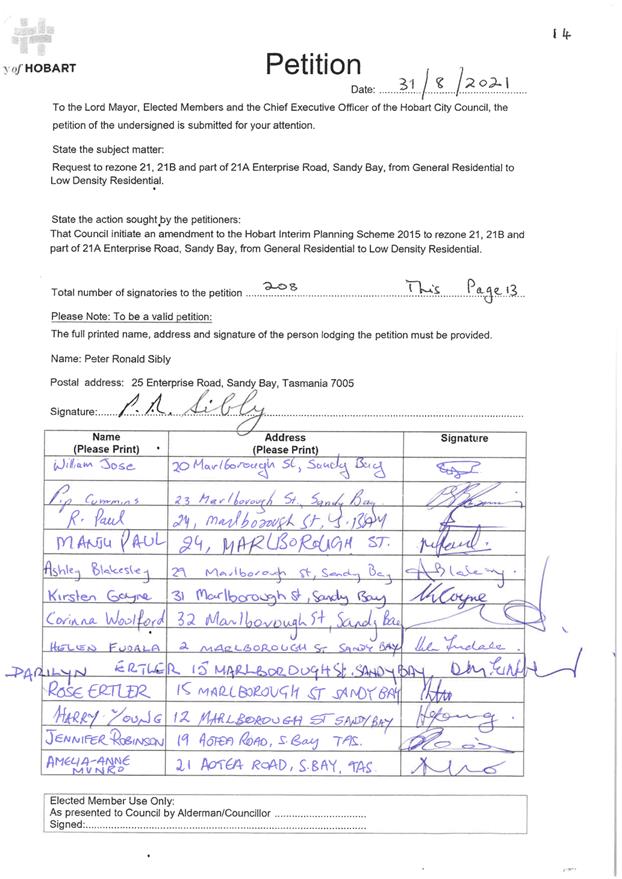 14
y of HOBART
Petition
Date: 31/8/2021
To the Lord Mayor, Elected Members and the Chief Executive Officer of the Hobart City Council, the
petition of the undersigned is submitted for your attention.
State the subject matter:
Request to rezone 21, 21B and part of 21A Enterprise Road, Sandy Bay, from General Residential to
Low Density Residential.
State the action sought by the petitioners:
That Council initiate an amendment to the Hobart Interim Planning Scheme 2015 to rezone 21, 21B and
part of 21A Enterprise Road, Sandy Bay, from General Residential to Low Density Residential.
Total number of signatories to the petition 208 This Page 13
Please Note: To be a valid petition:
The full printed name, address and signature of the person lodging the petition must be provided.
Name: Peter Ronald Sibly
Postal address: 25 Enterprise Road, Sandy Bay, Tasmania 7005
Signature: P.R. Sibly
Name Address Signature
(Please Print) (Please Print)
William Jose 20 Marlborough St, Sandy Bay
Pip Cummins 23 Marlborough St, Sandy Bay
R. Paul 24, Marlborough St, S. BAY
MANJU PAUL 24, MARLBOROUGH ST.
Ashley Blakesley 29 Marlborough st, Sandy Bay
Kirsten Coyne 31 Marlborough st, Sandy Bay
Corinna Woolford 32 Marlborough St, Sandy Bay
HELEN FUDALA 2 MARLBOROUGH St SANDY BAY
DARILYN ERTLER 15 MARLBOROUGH St. SANDY BAY
ROSE ERTLER 15 MARLBOROUGH ST SANDY BAY
HARRY YOUNG 12 MARLBOROUGH ST SANDY BAY HYoung.
JENNIFER ROBINSON 19 AOTEA ROAD, S. Bay TAS.
AMELIA-ANNE
MUNRO 21 AOTEA ROAD, S.BAY, TAS
Elected Member Use Only:
As presented to Council by Alderman/Councillor
Signed: